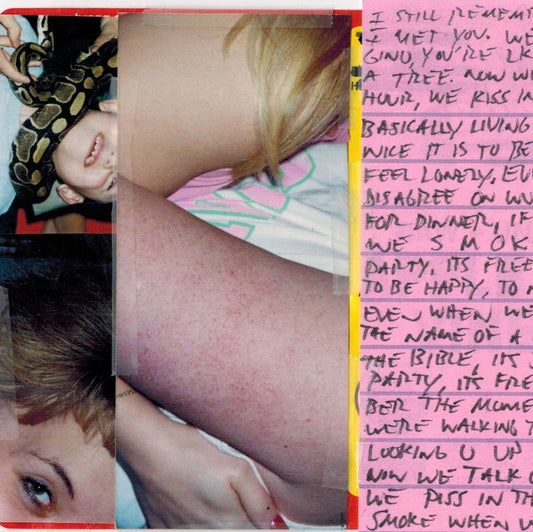 I STILL REMEM
I MET YOU. WE
GINO, YOU'RE LK
A TREE. NOW W
HOUR, WE KISS IN
BASICALLY LIVING
NICE IT IS TO BE
FEEL LONELY, EV
DISAGREE ON W
FOR DINNER, IF
WE SMOK
PARTY, ITS FREE
TO BE HAPPY, TO
EVEN WHEN WE
THE NAME OF A
THE BIBLE, ITS
PARTY, ITS FRE
BER THE MOME
WERE WALKING T
LOOKING U UP
NOW WE TALK
WE PISS IN TH
SMOKE WHEN